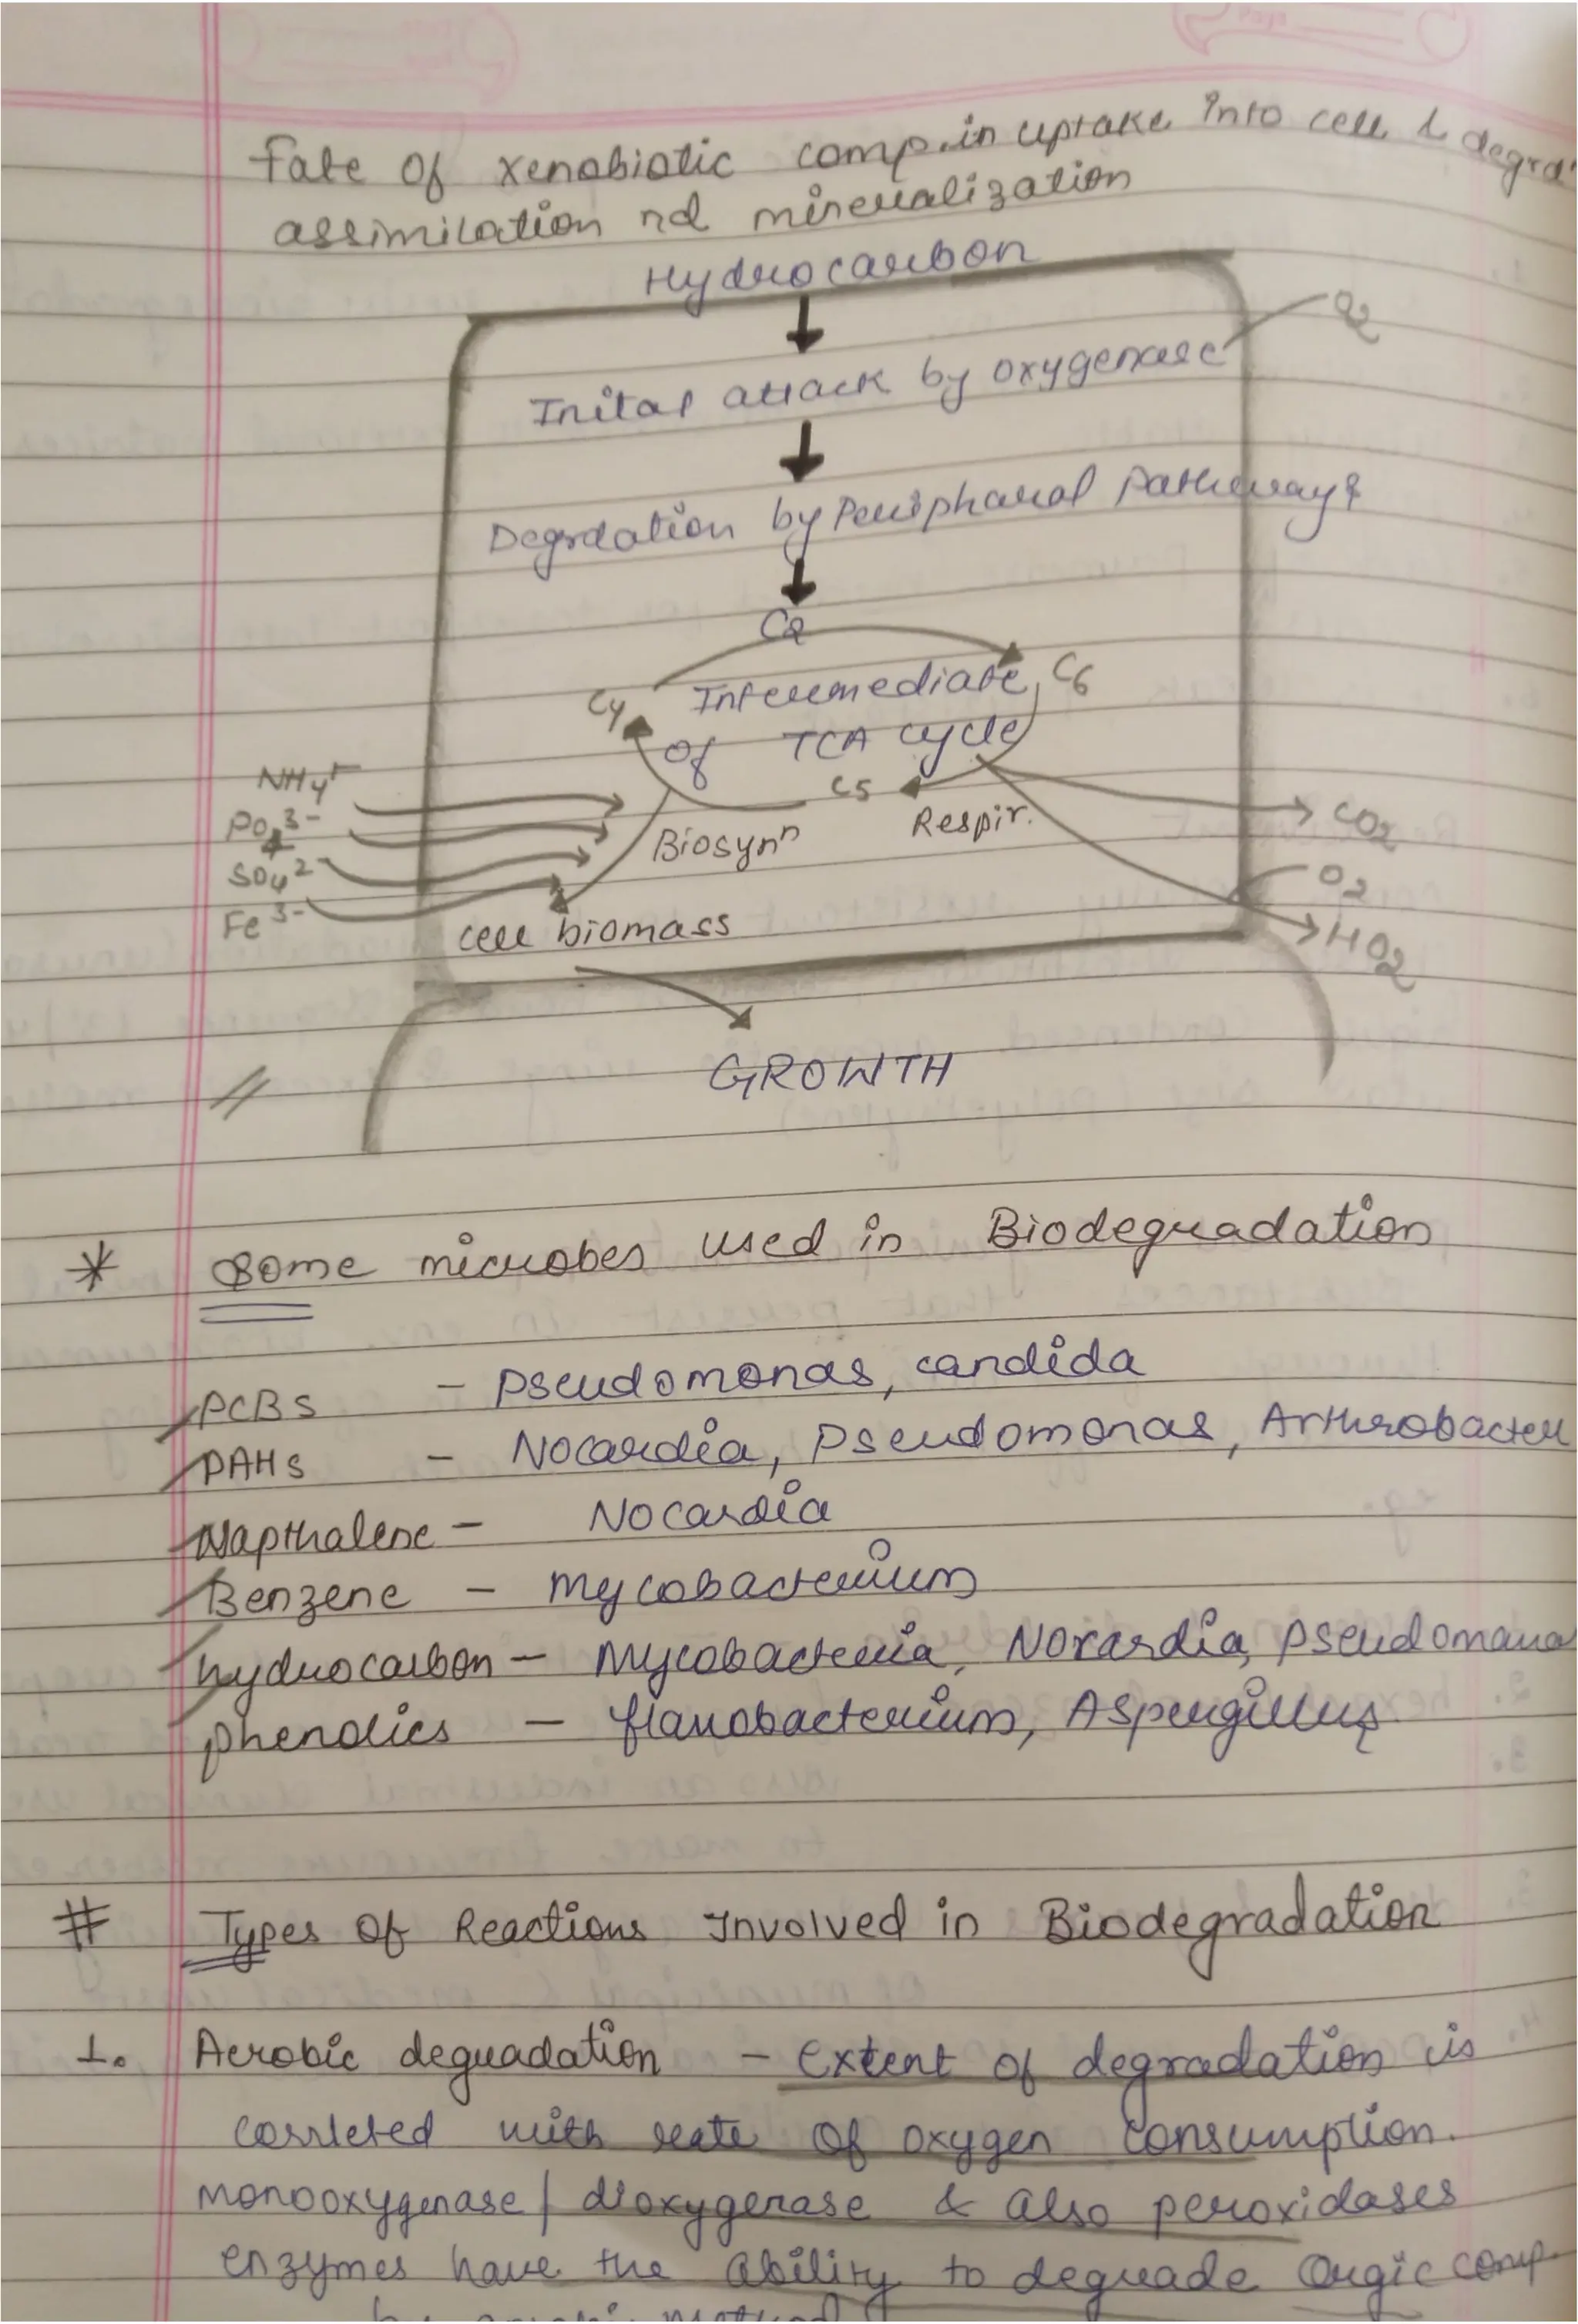 Fate of xenobiotic comp. in uptake into cell & degrd
assimilation nd mineralization
Hydrocarbon
O2
Inital attack by oxygenase
Degrdation by Peripharal Pathways
C2
C4 Intermediate C6
of TCA cycle
C5
NH4+
PO4 3-
SO4 2-
Fe 3-
Biosynn
Respir.
CO2
O2
HO2
cell biomass
GROWTH
* Some microbes used in Biodegradation
PCBs - Pseudomonas, candida
PAHs - Nocardia, Pseudomonas, Arthrobacter
Napthalene - Nocardia
Benzene - Mycobacterium
hydrocarbon - Mycobacteria, Norardia, Pseudomona
phenolics - flavobacterium, Aspergillus
# Types of Reactions Involved in Biodegradation
1. Aerobic degradation - Extent of degradation is
corrleted with rate of oxygen consumption.
monooxygenase/dioxygenase & also peroxidases
enzymes have the ability to degrade Orgic comp.